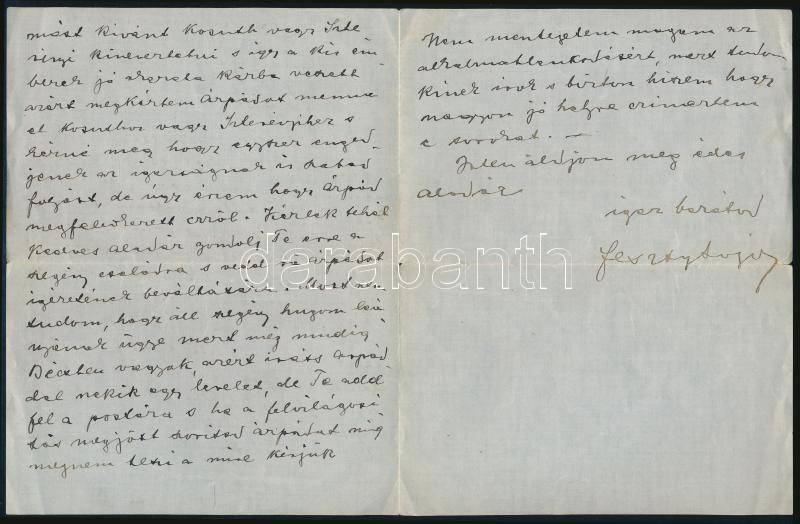 mást kivánt Kosuth vagy Iste
ványi kineveztetni s igy a kis em
berek jó szava kárba veszett
azért megkértem Árpádot menne
el Kosuthoz vagy hez s
kérné meg hogy egyszer enged
jenek az igazságnak is szabad
folyást, de úgy érzem hogy Árpád
megfeledkezett erről. Kérlek tehát
Kedves Aladár gondolj Te erre a
szegény családra s vedd rá Árpádot
igéretének beváltására. Most nem
tudom, hogy áll szegény hugom
ügye mert még mindig
Bécsben vagyok, azért irass Árpád
dal nekik egy levelet, de Te add
fel a postára s ha a felvilágosi
tás megjött szoritsd Árpádot mig
megnem teszi a mire kérjük
Nem mentegetem magam az
alkalmatlankodásért, mert tudom
kinek irok s bizton hiszem hogy
nagyon jó helyre czimeztem
e sorokat. —
Isten áldjon meg édes
Aladár
igaz barátod
Feszty
darabanth